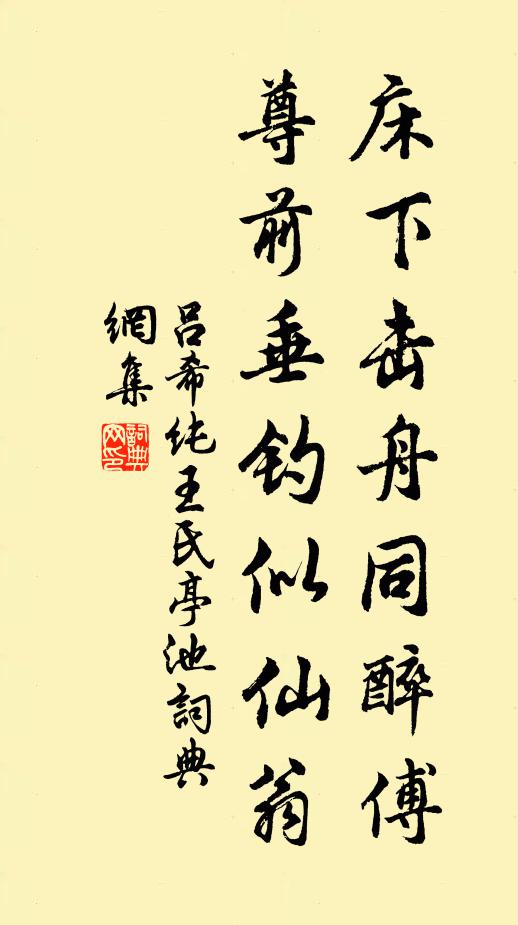 床下击舟同醉傅
尊前垂钓似仙翁
吕希纯王氏亭池詞典
網集
詞典網印